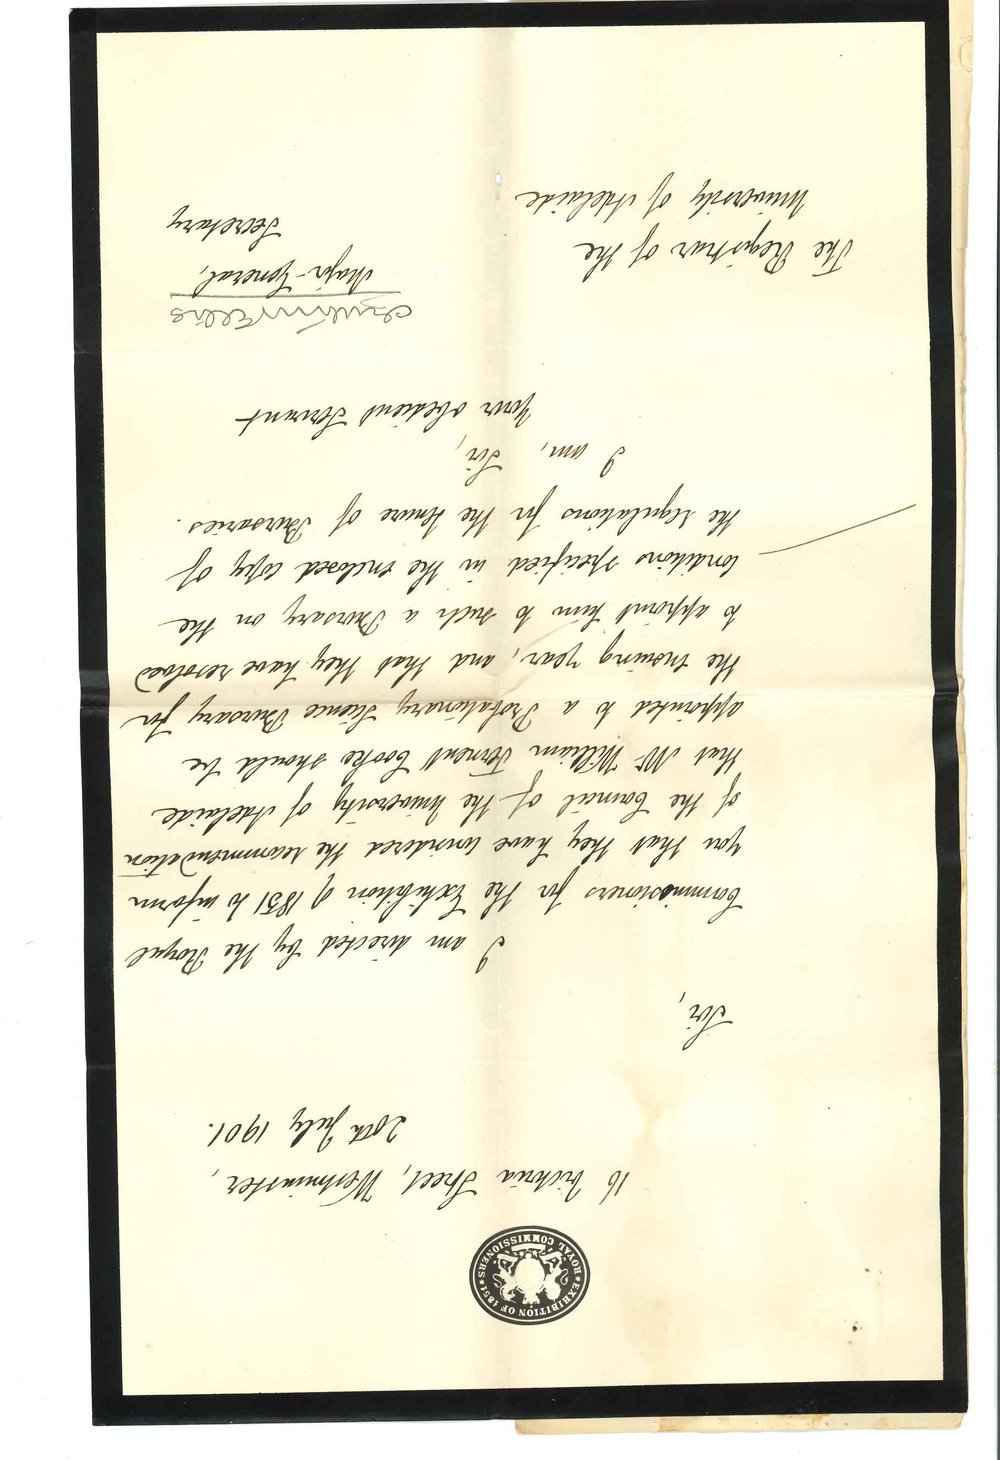 EXHIBITION OF 1851
ROYAL COMMISSIONERS
16 Victoria Street, Westminster,
20th July 1901.
Sir,
I am directed by the Royal
Commissioners for the Exhibition of 1851 to inform
you that they have considered the recommendation
of the Council of the University of Adelaide
that Mr William Ternent Cooke should be
appointed to a Probationary Science Bursary for
the ensuing year, and that they have resolved
to appoint him to such a Bursary on the
conditions specified in the enclosed copy of
the regulations for the tenure of Bursaries.
I am, Sir,
Your obedient Servant
Ellis
Major-General,
Secretary
The Registrar of the
University of Adelaide